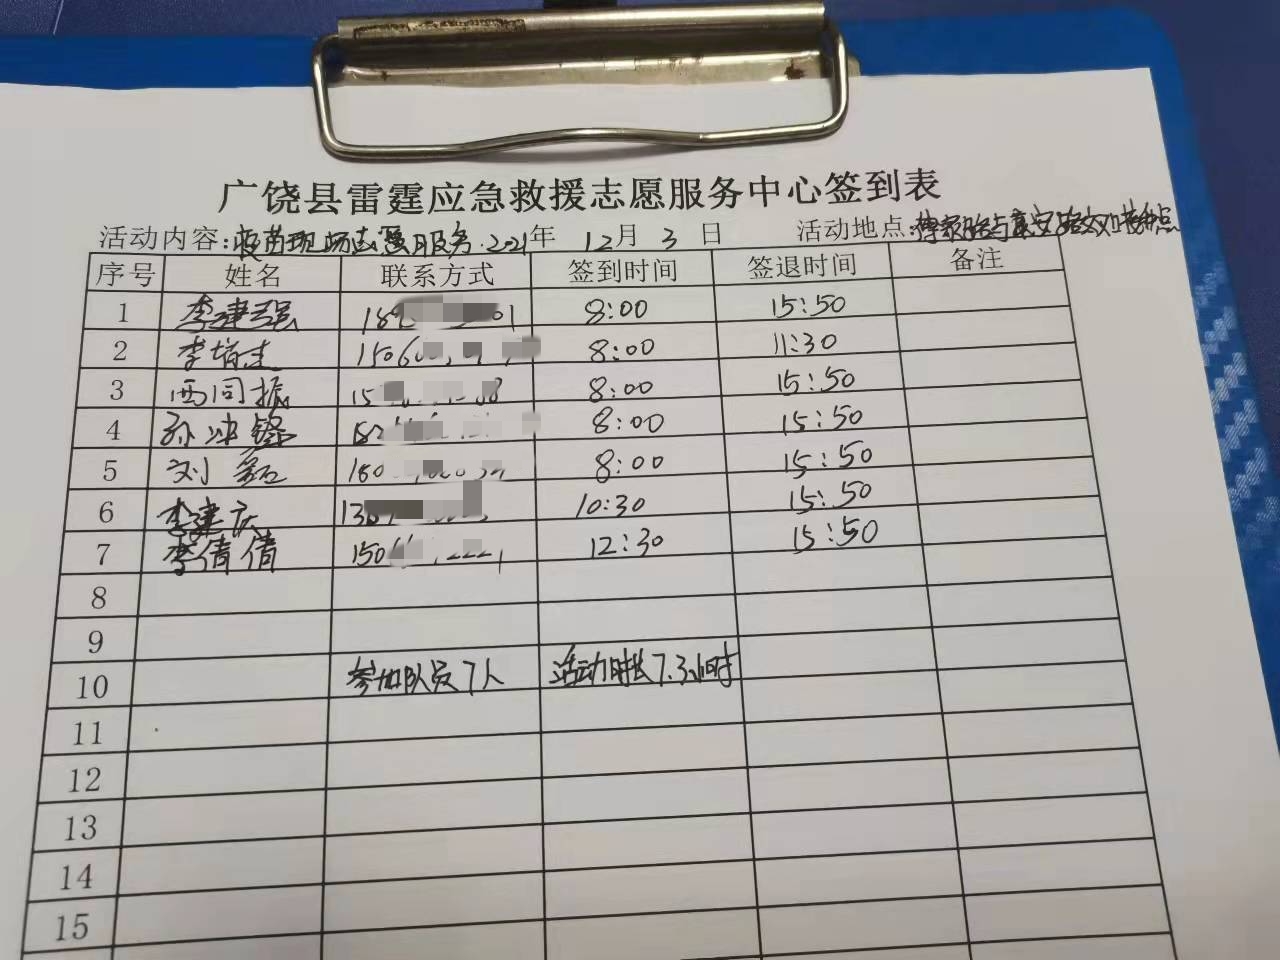 广饶县雷霆应急救援志愿服务中心签到表
活动内容:疫苗现场志愿服务.2021年 12月 3 日 活动地点:
序号 姓名 联系方式 签到时间 签退时间 备注
1 李建强 8:00 15:50
2 李 8:00 11:30
3 西同振 8:00 15:50
4 孙冲锋 8:00 15:50
5 刘磊 8:00 15:50
6 李建庆 10:30 15:50
7 李倩倩 12:30 15:50
8
9
10 参加队员7人 活动时长7.3小时
11
12
13
14
15